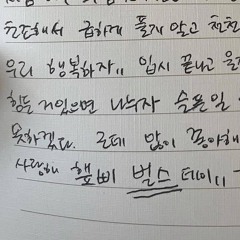 천천해서 급하게 풀게 않고 천천
우리 행복하자,, 입시 끝나고 울
힘들 거 있으면 나누자 슬픈 일
못하겠다. 근데 많이 좋아해
사랑해 햎삐 벌스데이,,